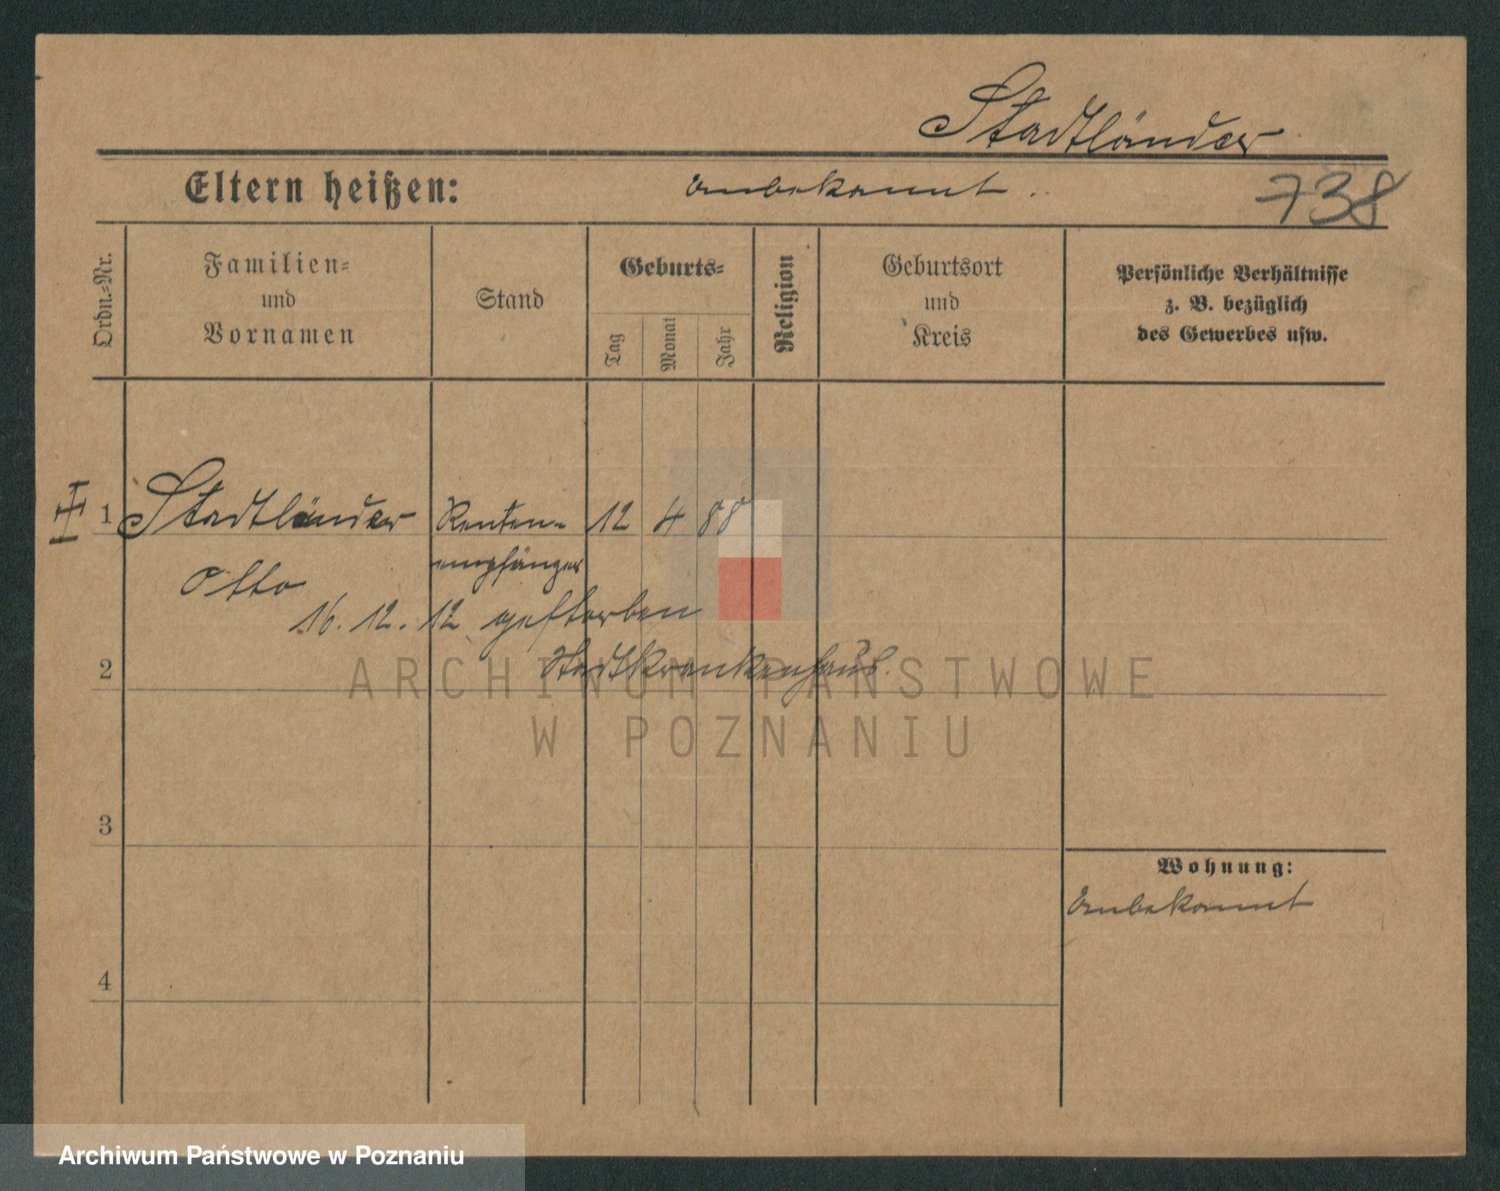 Stadtländer
Eltern heißen: unbekannt.
738
Ordn.-Nr.
Familien-
und
Vornamen
Stand
Geburts-
Tag
Monat
Jahr
Religion
Geburtsort
und
Kreis
Persönliche Verhältnisse
z. B. bezüglich
des Gewerbes usw.
1 Stadtländer Renten- 12 4 88
Otto empfänger
16. 12. 12 gestorben
2 Stadtkrankenhaus.
ARCHIWUM PAŃSTWOWE
W POZNANIU
3
Wohnung:
unbekannt
4
Archiwum Państwowe w Poznaniu